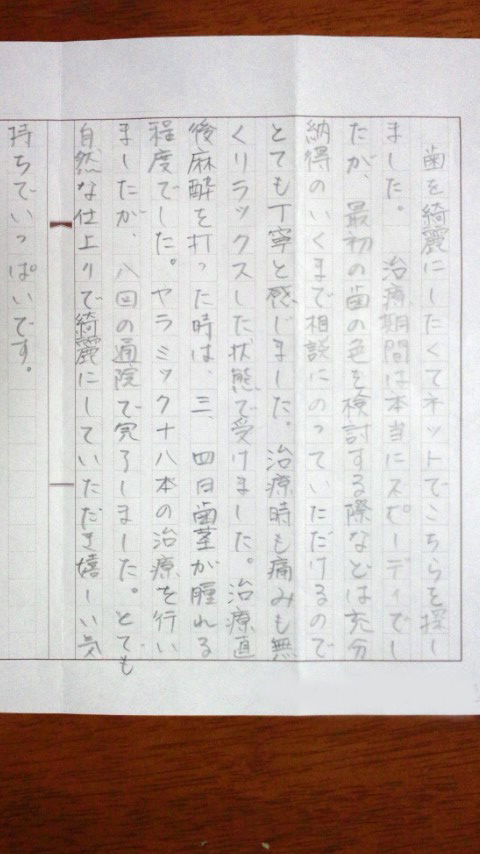 歯を綺麗にしたくてネットでこちらを探し
ました。 治療期間は本当にスピーディでし
たが、最初の歯の色を検討する際などは充分
納得のいくまで相談にのっていただけるので
とても丁寧と感じました。治療時も痛みも無
くリラックスした状態で受けました。治療直
後麻酔を打った時は、三、四日歯茎が腫れる
程度でした。ヤラミック十八本の治療を行い
ましたが、八回の通院で完了しました。とても
自然な仕上りで綺麗にしていただき嬉しい気
持ちでいっぱいです。